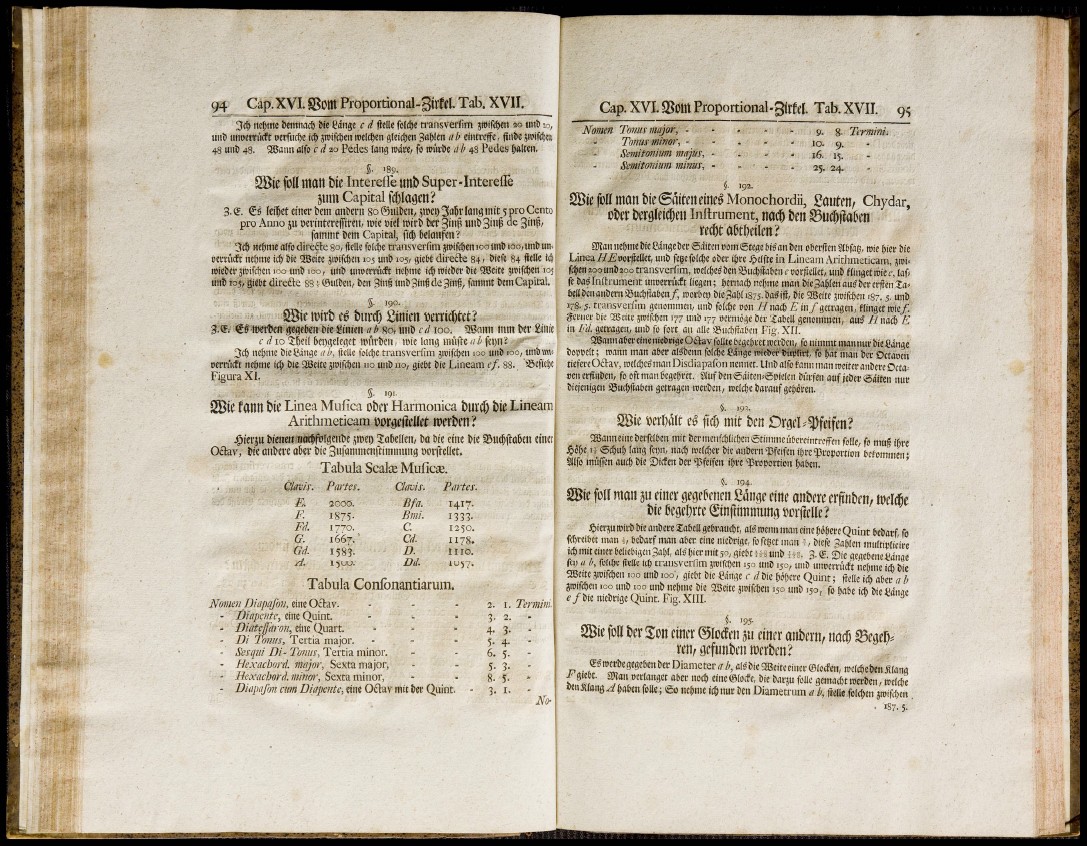 94 Cap. XVI. Vom Proportional-Zirkel. Tab. XVII.
Ich nehme demnach die Länge c d stelle solche transversim zwischen 20 und 20,
und unverrückt versuche ich zwischen welchen gleichen Zahlen a b eintreffe, finde zwischen
48 und 48. Wann also c d 20 Pedes lang wäre, so würde a b 48 Pedes halten.
§. 189.
Wie soll man die Interesse und Super-Interesse
zum Capital schlagen?
Z. E. Es leihet einer dem andern 80 Gulden, zwey Jahr lang mit 5 pro Cento
pro Anno zu verinteressiren, wie viel wird der Zinß und Zinß de Zinß,
sammt dem Capital, sich belaufen?
Ich nehme also directe 80, stelle solche transversim zwischen 100 und 100, und un-
verrückt nehme ich die Weite zwischen 105 und 105, giebt directe 84, diese 84 stelle ich
wieder zwischen 100 und 100, und unverrückt nehme ich wieder die Weite zwischen 105
und 105, giebt directe 88 : Gulden, den Zinß und Zinß de Zinß, sammt dem Capital.
§. 190.
Wie wird es durch Linien verrichtet?
Z. E. Es werden gegeben die Linien a b 80, und c d 100. Wann nun der Linie
c d 10 Theil beygeleget würden, wie lang müste a b seyn?
Ich nehme die Länge a b, stelle solche transversim zwischen 100 und 100, und un-
verrückt nehme ich die Weite zwischen 110 und 110, giebt die Lineam e f. 88. Besiehe
Figura XI.
§. 191.
Wie kann die Linea Musica oder Harmonica durch die Lineam
Arithmeticam vorgestellet werden?
Hierzu dienen nachfolgende zwey Tabellen, da die eine die Buchstaben einer
Octav, die andere aber die Zusammenstimmung vorstellet.
Tabula Scalæ Musicæ.
Clavis. Partes. Clavis. Partes.
E. 2000. Bfa. 1417.
F. 1875. Bmi. 1333.
Fd. 1770. C. 1250.
G. 1667. Cd. 1178.
Gd. 1583. D. 1110.
A. 1500. Dd. 1057.
Tabula Consonantiarum.
Nomen Diapason, eine Octav. - - - 2. 1. Termini.
- Diapente, eine Quint. - - - 3. 2. -
- Diatessaron, eine Quart. - - - 4. 3. -
- Di Tonus, Tertia major. - - - 5. 4. -
- Sesqui Di-Tonus, Tertia minor. - - 6. 5. -
- Hexachord. major, Sexta major, - - 5. 3. -
- Hexachord. minor, Sexta minor, - - 8. 5. -
- Diapason cum Diapente, eine Octav mit der Quint. - 3. 1. -
No-
Cap. XVI. Vom Proportional-Zirkel. Tab. XVII. 95
Nomen Tonus major, - - - - - 9. 8. Termini.
- Tonus minor, - - - - - 10. 9. -
- Semitonium majus, - - - - 16. 15. -
- Semitonium minus, - - - - 25. 24. -
§. 192.
Wie soll man die Säiten eines Monochordii, Lauten, Chydar,
oder dergleichen Instrument, nach den Buchstaben
recht abtheilen?
Man nehme die Länge der Säiten vom Stege bis an den obersten Absatz, wie hier die
Linea H E vorstellet, und setze solche oder ihre Helfte in Lineam Arithmeticam, zwi-
schen 200 und 200 transversim, welches den Buchstaben e vorstellet, und klinget wie e, las-
se das Instrument unverrückt liegen; hernach nehme man die Zahlen aus der ersten Ta-
bell den andern Buchstaben f, worbey die Zahl 1875. das ist, die Weite zwischen 187. 5. und
178. 5. transversim genommen, und solche von H nach E in f getragen, klinget wie f.
Ferner die Weite zwischen 177 und 177 vermöge der Tabell genommen, aus H nach E
in Fd. getragen, und so fort an alle Buchstaben Fig. XII.
Wann aber eine niedrige Octav sollte begehret werden, so nimmt man nur die Länge
doppelt; wann man aber alsdenn solche Länge wieder dupliret, so hat man der Octaven
tiefere Octav, welches man Disdiapason nennet. Und also kann man weiter andere Octa-
ven erfinden, so oft man begehret. Auf den Säiten-Spielen dürfen auf jeder Säiten nur
diejenigen Buchstaben getragen werden, welche darauf gehören.
§. 193.
Wie verhält es sich mit den Orgel-Pfeifen?
Wann eine derselben mit der menschlichen Stimme übereintreffen solle, so muß ihre
Höhe Schuh lang seyn, nach welcher die andern Pfeifen ihre Proportion bekommen;
Also müssen auch die Dicken der Pfeifen ihre Proportion haben.
§. 194.
Wie soll man zu einer gegebenen Länge eine andere erfinden, welche
die begehrte Einstimmung vorstelle?
Hierzu wird die andere Tabell gebraucht, als wenn man eine höhere Quint bedarf, so
schreibet man , bedarf man aber eine niedrige, so setzet man , diese Zahlen multiplicire
ich mit einer beliebigen Zahl, als hier mit 50, giebt und . Z. E. Die gegebene Länge
sey a b, solche stelle ich transversim zwischen 150 und 150, und unverrückt nehme ich die
Weite zwischen 100 und 100, giebt die Länge c d die höhere Quint; stelle ich aber a b
zwischen 100 und 100 und nehme die Weite zwischen 150 und 150, so habe ich die Länge
e f die niedrige Quint. Fig. XIII.
§. 195.
Wie soll der Ton einer Glocken zu einer andern, nach Begeh-
ren, gefunden werden?
Es werde gegeben der Diameter a b, als die Weite einer Glocken, welche den Klang
F giebt. Man verlanget aber noch eine Glocke, die darzu solle gemacht werden, welche
den Klang A haben solle; So nehme ich nur den Diametrum a b, stelle solchen zwischen
187. 5.